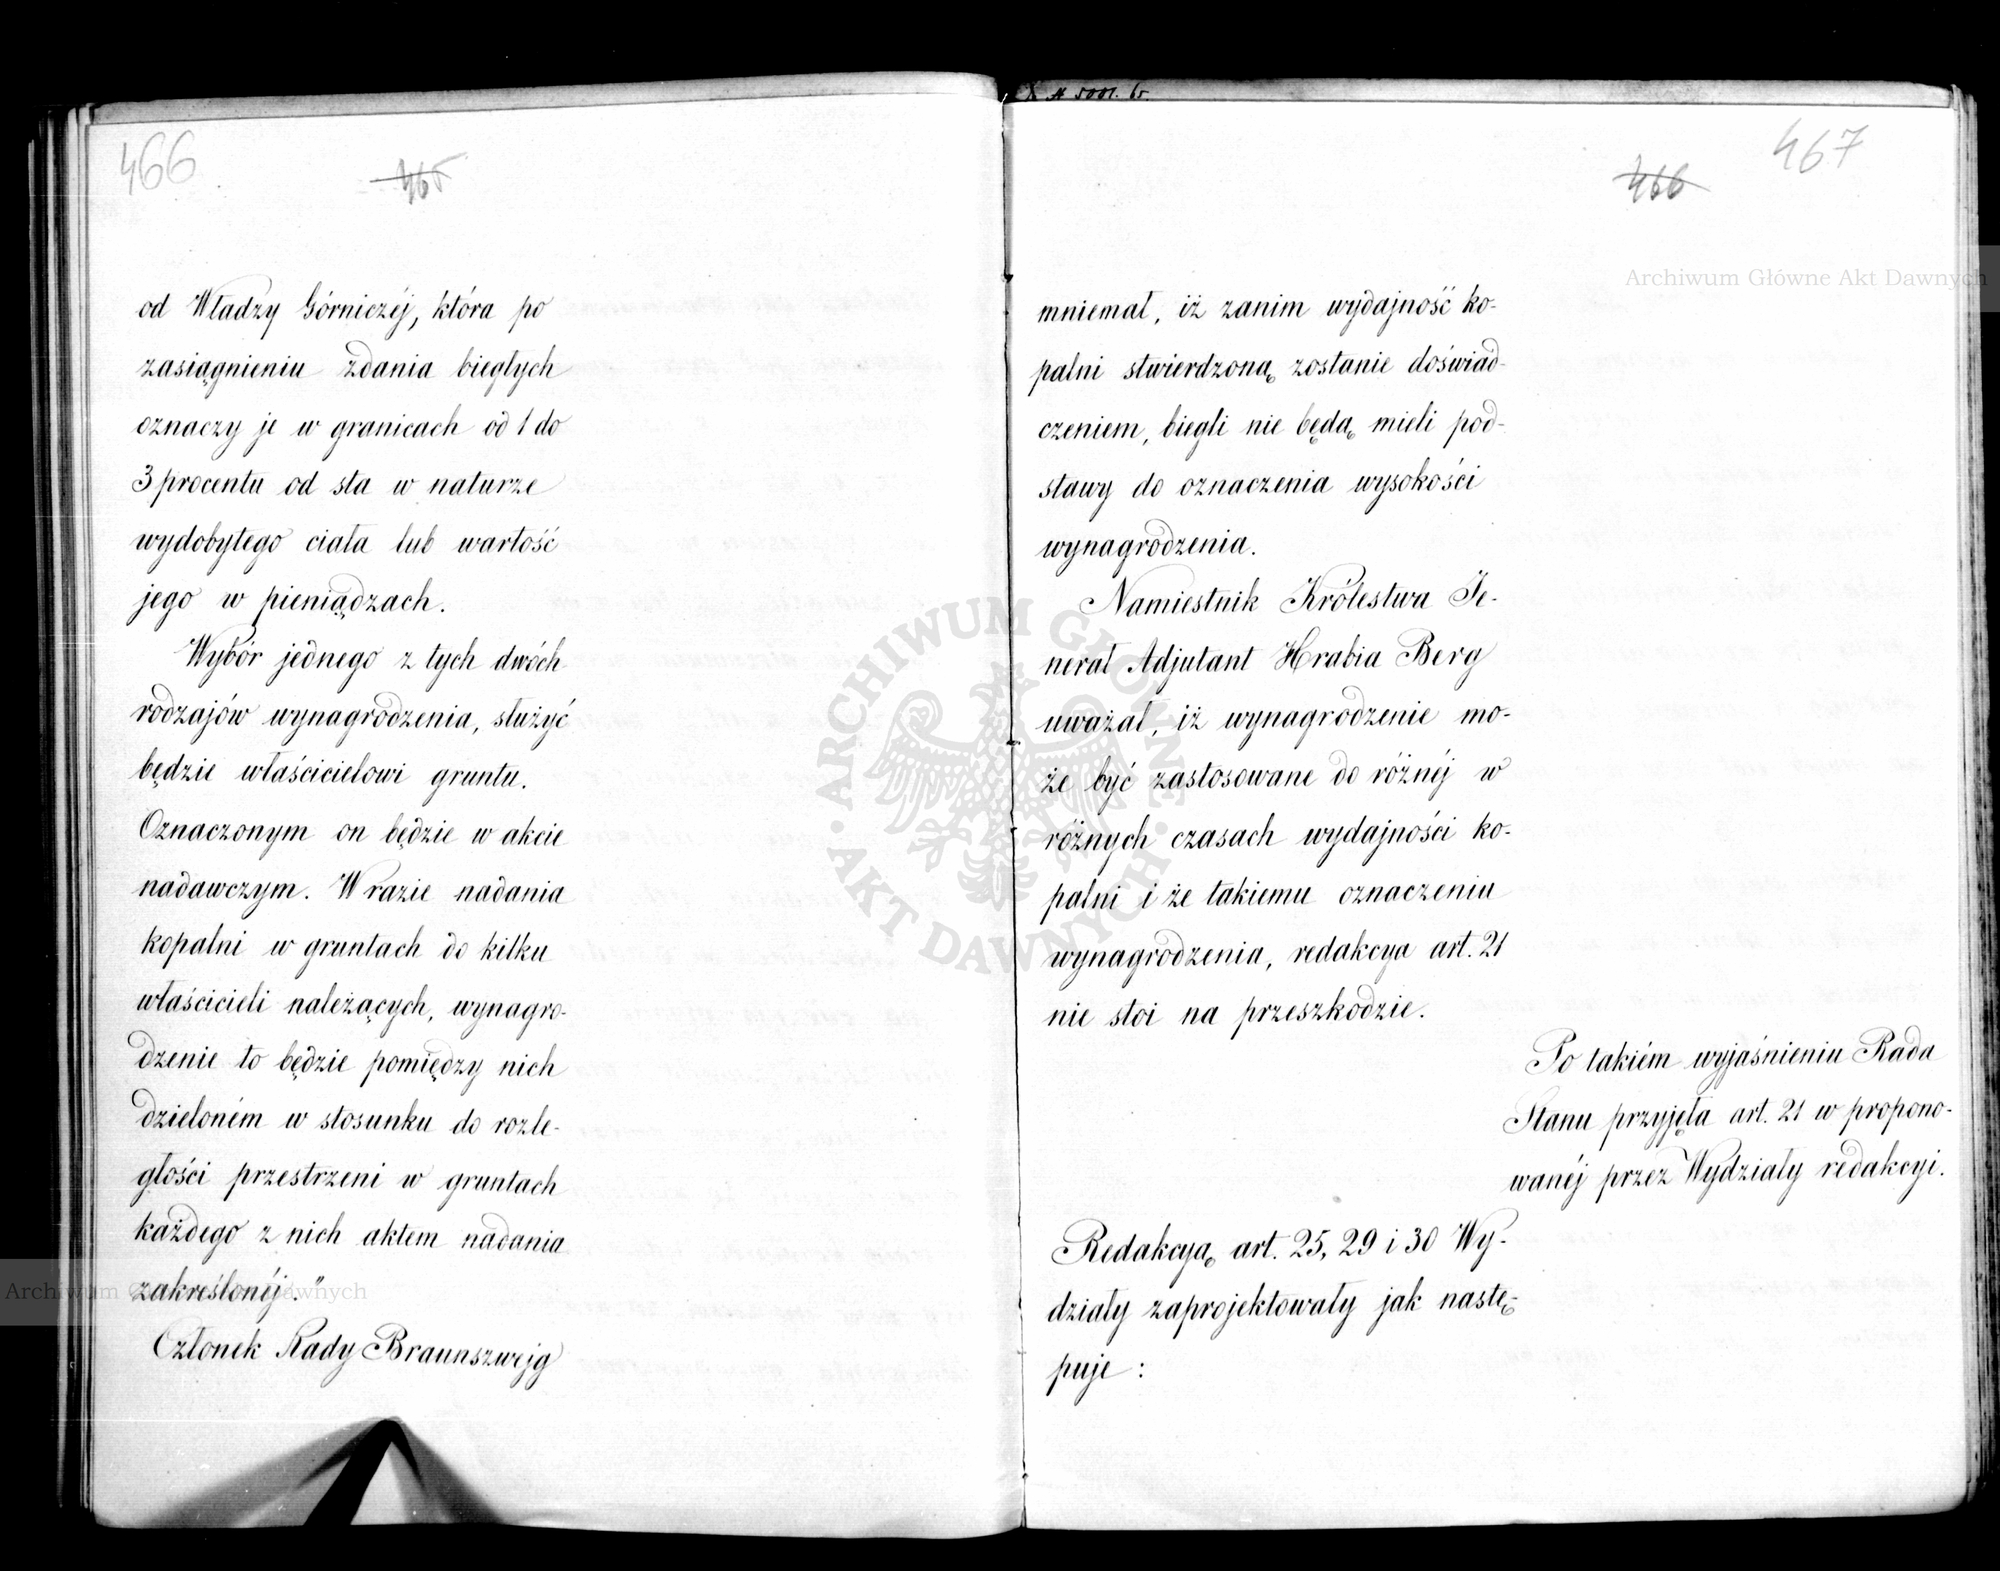 466
465
od Władzy Górniczéj, która po
zasiągnieniu zdania biegłych
oznaczy je w granicach od 1 do
3 procentu od sta w naturze
wydobytego ciała lub wartość
jego w pieniądzach.
Wybór jednego z tych dwóch
rodzajów wynagrodzenia, służyć
będzie właścicielowi gruntu.
Oznaczonym on będzie w akcie
nadawczym. W razie nadania
kopalni w gruntach do kilku
właścicieli należących, wynagro-
dzenie to będzie pomiędzy nich
dzieloném w stosunku do rozle-
głości przestrzeni w gruntach
każdego z nich aktem nadania
zakreślonéj."
Członek Rady Braunszwejg
467
466
mniemał, iż zanim wydajność ko-
palni stwierdzoną zostanie doświad-
czeniem, biegli nie będą mieli pod-
stawy do oznaczenia wysokości
wynagrodzenia.
Namiestnik Królestwa Je-
nerał Adjutant Hrabia Berg
uważał, iż wynagrodzenie mo-
że być zastosowane do różnéj w
różnych czasach wydajności ko-
palni i że takiemu oznaczeniu
wynagrodzenia, redakcya art. 21
nie stoi na przeszkodzie.
Po takiém wyjaśnieniu Rada
Stanu przyjęła art. 21 w propono-
wanéj przez Wydziały redakcyi.
Redakcyą art. 25, 29 i 30 Wy-
działy zaprojektowały jak nastę-
puje:
Archiwum Główne Akt Dawnych
Archiwum Główne Akt Dawnych
ARCHIWUM GŁÓWNE · AKT DAWNYCH ·